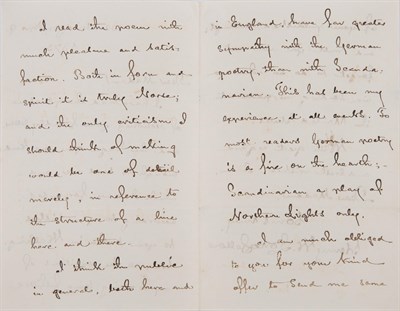 I read the poem with
much pleasure and satis-
faction. Both in form and
spirit it is truly Norse;
and the only criticism I
should think of making
would be one of detail
merely, in reference to
the structure of a line
here and there.
I think the public
in general, both here and
in England, have far greater
sympathy with the German
poetry, than with Scandi-
navian. This has been my
experience, at all events. To
most readers German poetry
is a fire on the hearth;
Scandinavian a play of
Northern Lights only.
I am much obliged
to you for your kind
offer to send me some